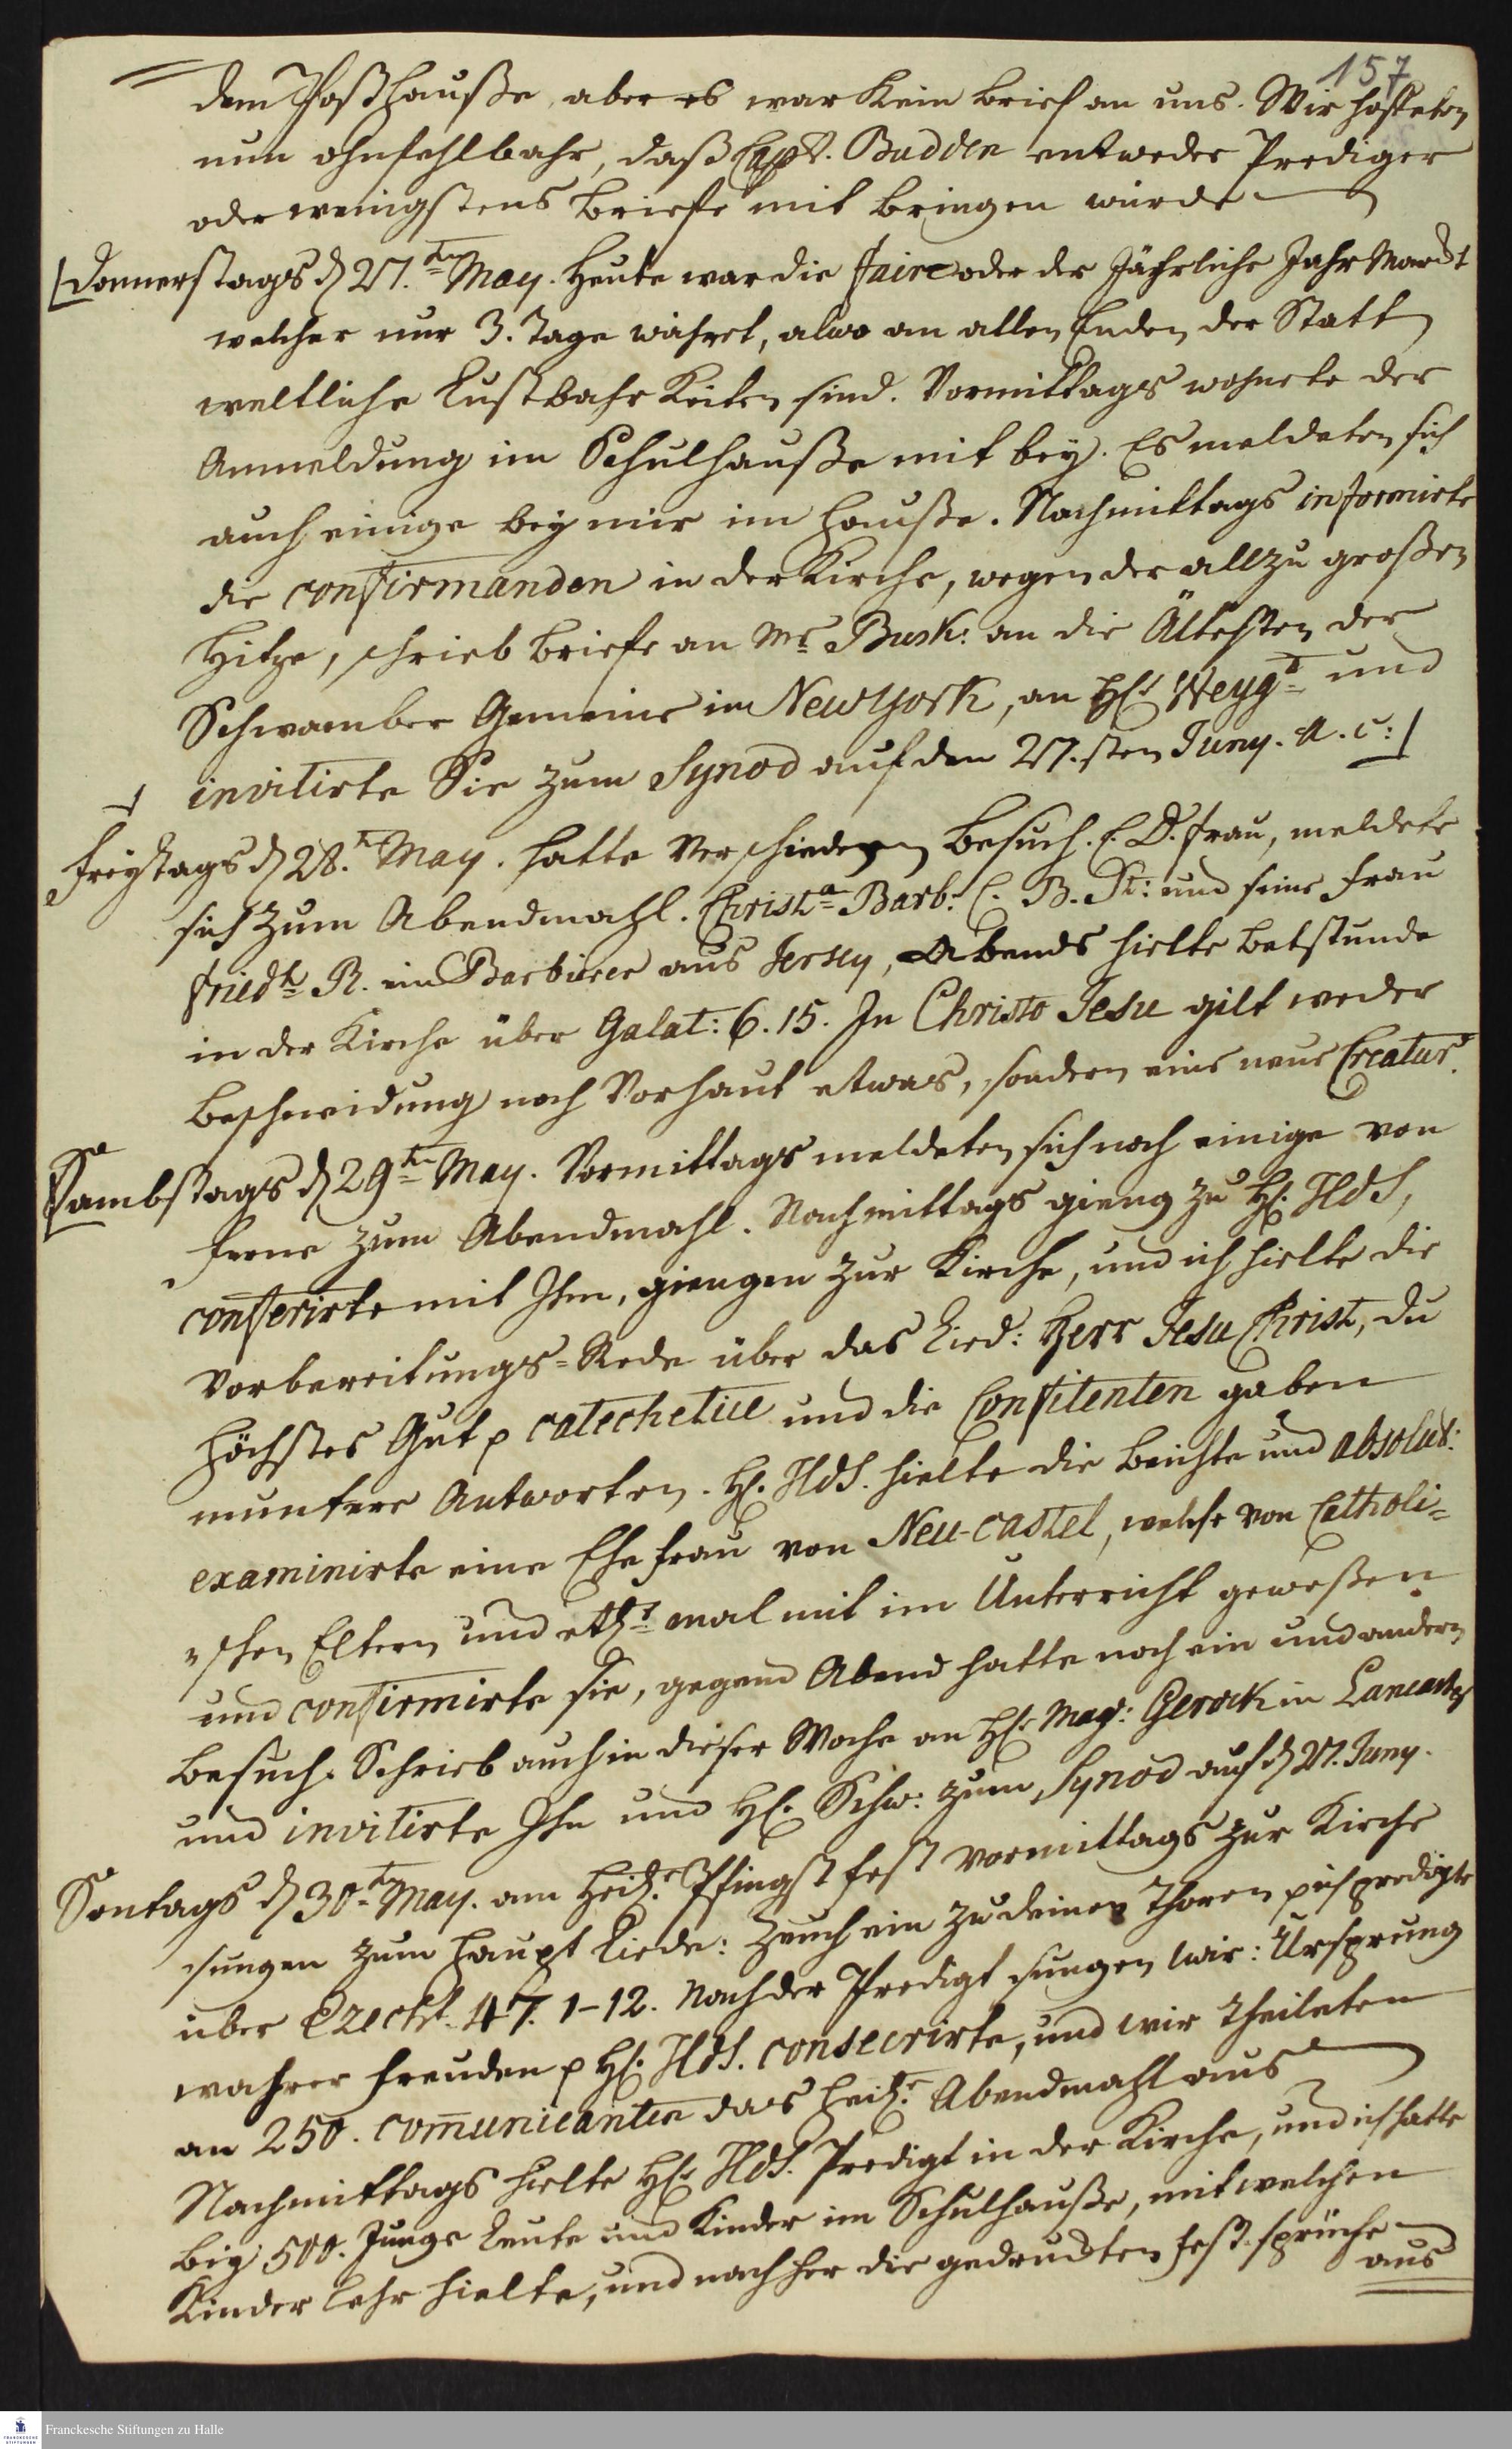 157
dem Posthauße, aber es war Kein brief an uns. Wir hoffeten
nun ohnfehlbahr, daß Capt. Budden entweder Prediger
oder wenigstens briefe mit bringen würde
Donnerstags d 27.ten May. Heute war die faire oder der Jährliche Jahr Marckt
welcher nur 3. Tage währet, alwo an allen Enden der Statt
weltliche Lustbahrkeiten sind. Vormittags wohnete der
Anmeldung im Schulhauße mit bey. Es meldeten sich
auch einige bey mir im Hauße. Nachmittags informirte
die confirmanden in der Kirche, wegen der allzu großen
Hitze, schrieb briefe an Mr Busk: an die Ältesten der
Schwamber Gemeine in NewYork, an H. Weygd und
invitirte Sie zum Synod auf den 27.sten Juny. a. c:
Freytags d 28.t May. hatte Verschiedenen besuch. E. D. frau, meldete
sich zum Abendmahl. Christa Barb: C. B. St: und seine frau
friedh R. ein Barbierer aus Jersey, Abends hielte betstunde
in der Kirche über Galat: 6. 15. In Christo Jesu gilt weder
beschneidung noch Vorhaut etwas, sondern eine neue Creatur.
Sambstags d 29ten May. Vormittags meldeten sich noch einige von
ferne zum Abendmahl. Nachmittags gieng zu H. HdS,
conferirte mit Ihm, giengen zur Kirche, und ich hielte die
Vorbereitungs-Rede über das Lied: Herr Jesu Christ, du
höchstes Gut p catechetice und die Confitenten gaben
muntere Antworten. H. HdS. hielte die beichte und absolut:
examinirte eine Ehefrau von Neu-castel, welche von Catholi-
schen Eltern und etl. mal mit im Unterricht geweßen
und confirmirte sie, gegend Abend hatte noch ein und andern
besuch. Schrieb auch in dieser Woche an H. Mag: Gerock in Lancaster
und invitirte Ihn und H. Schw: zum Synod auf d 27. Juny.
Sontags d 30.ten May. am Heil. Pfingstfest Vormittags zur Kirche
sungen zum Haupt Liede: Zeuch ein zu deinen Thoren p ich predigte
über Ezech. 47. 1-12. Nach der Predigt sungen wir: Ursprung
wahrer freuden p H. HdS. consecrirte, und wir theileten
an 250. com̄unicanten das heil. Abendmahl aus
Nachmittags hielte H. HdS. Predigt in der Kirche, und ich hatte
bey 500. Junge leute und Kinder im Schulhauße, mit welchen
Kinder lehr hielte, und nachher die gedruckten fest-sprüche
aus
Franckesche Stiftungen zu Halle